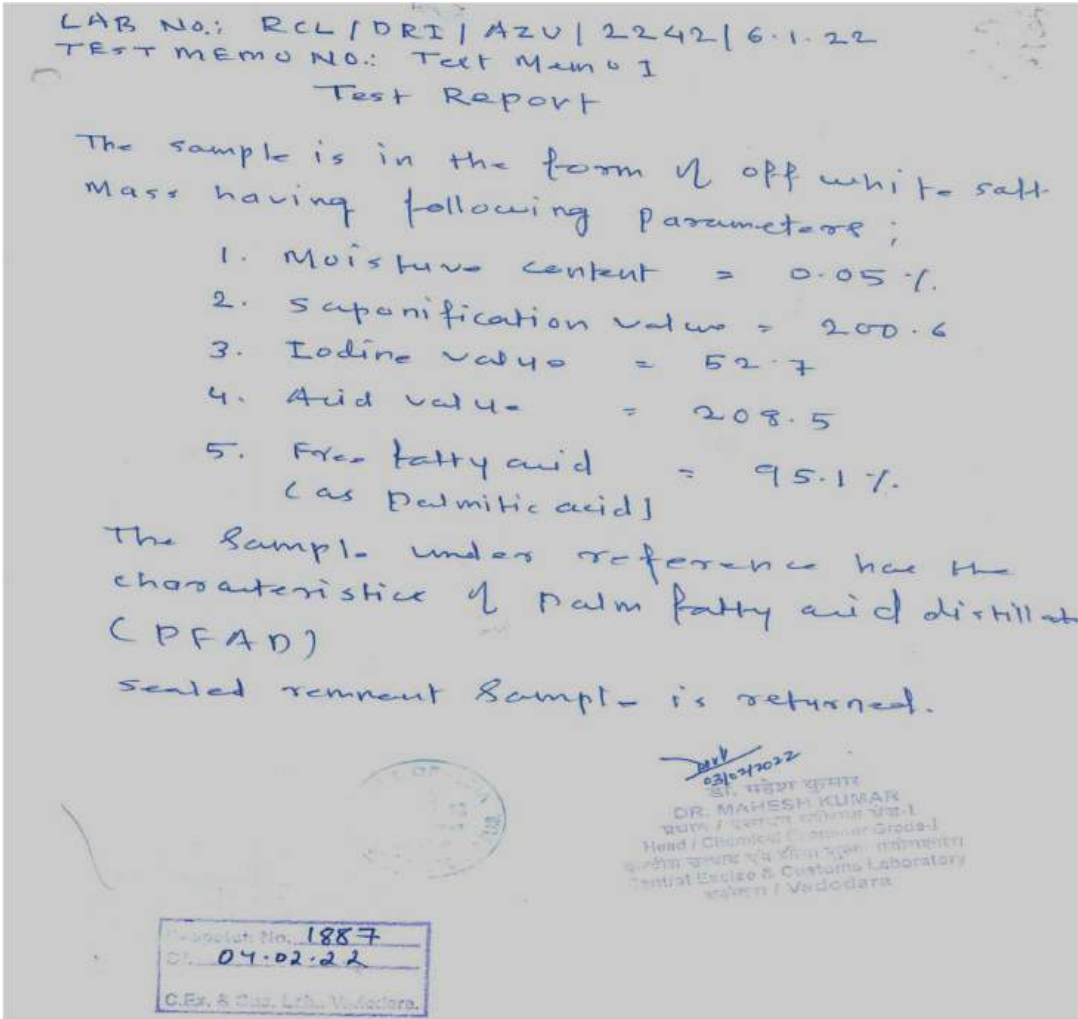 LAB No.: RCL/DRI/AZU/2242/6.1.22
TEST MEMO NO.: Test Memo 1
Test Report
The sample is in the form of off white soft
Mass having following parameters;
1. Moisture content = 0.05 %.
2. Saponification value = 200.6
3. Iodine value = 52.7
4. Acid value = 208.5
5. Free fatty acid = 95.1 %.
(as palmitic acid)
The Sample under reference has the
characteristics of palm fatty acid distillate
(PFAD)
Sealed remnant Sample is returned.
03/02/2022
डॉ. महेश कुमार
DR. MAHESH KUMAR
Head / Chemical Examiner Grade-I
Central Excise & Customs Laboratory
/ Vadodara
Despatch No. 1887
Dt. 04.02.22
C.Ex. & Cus. Lab., Vadodara.